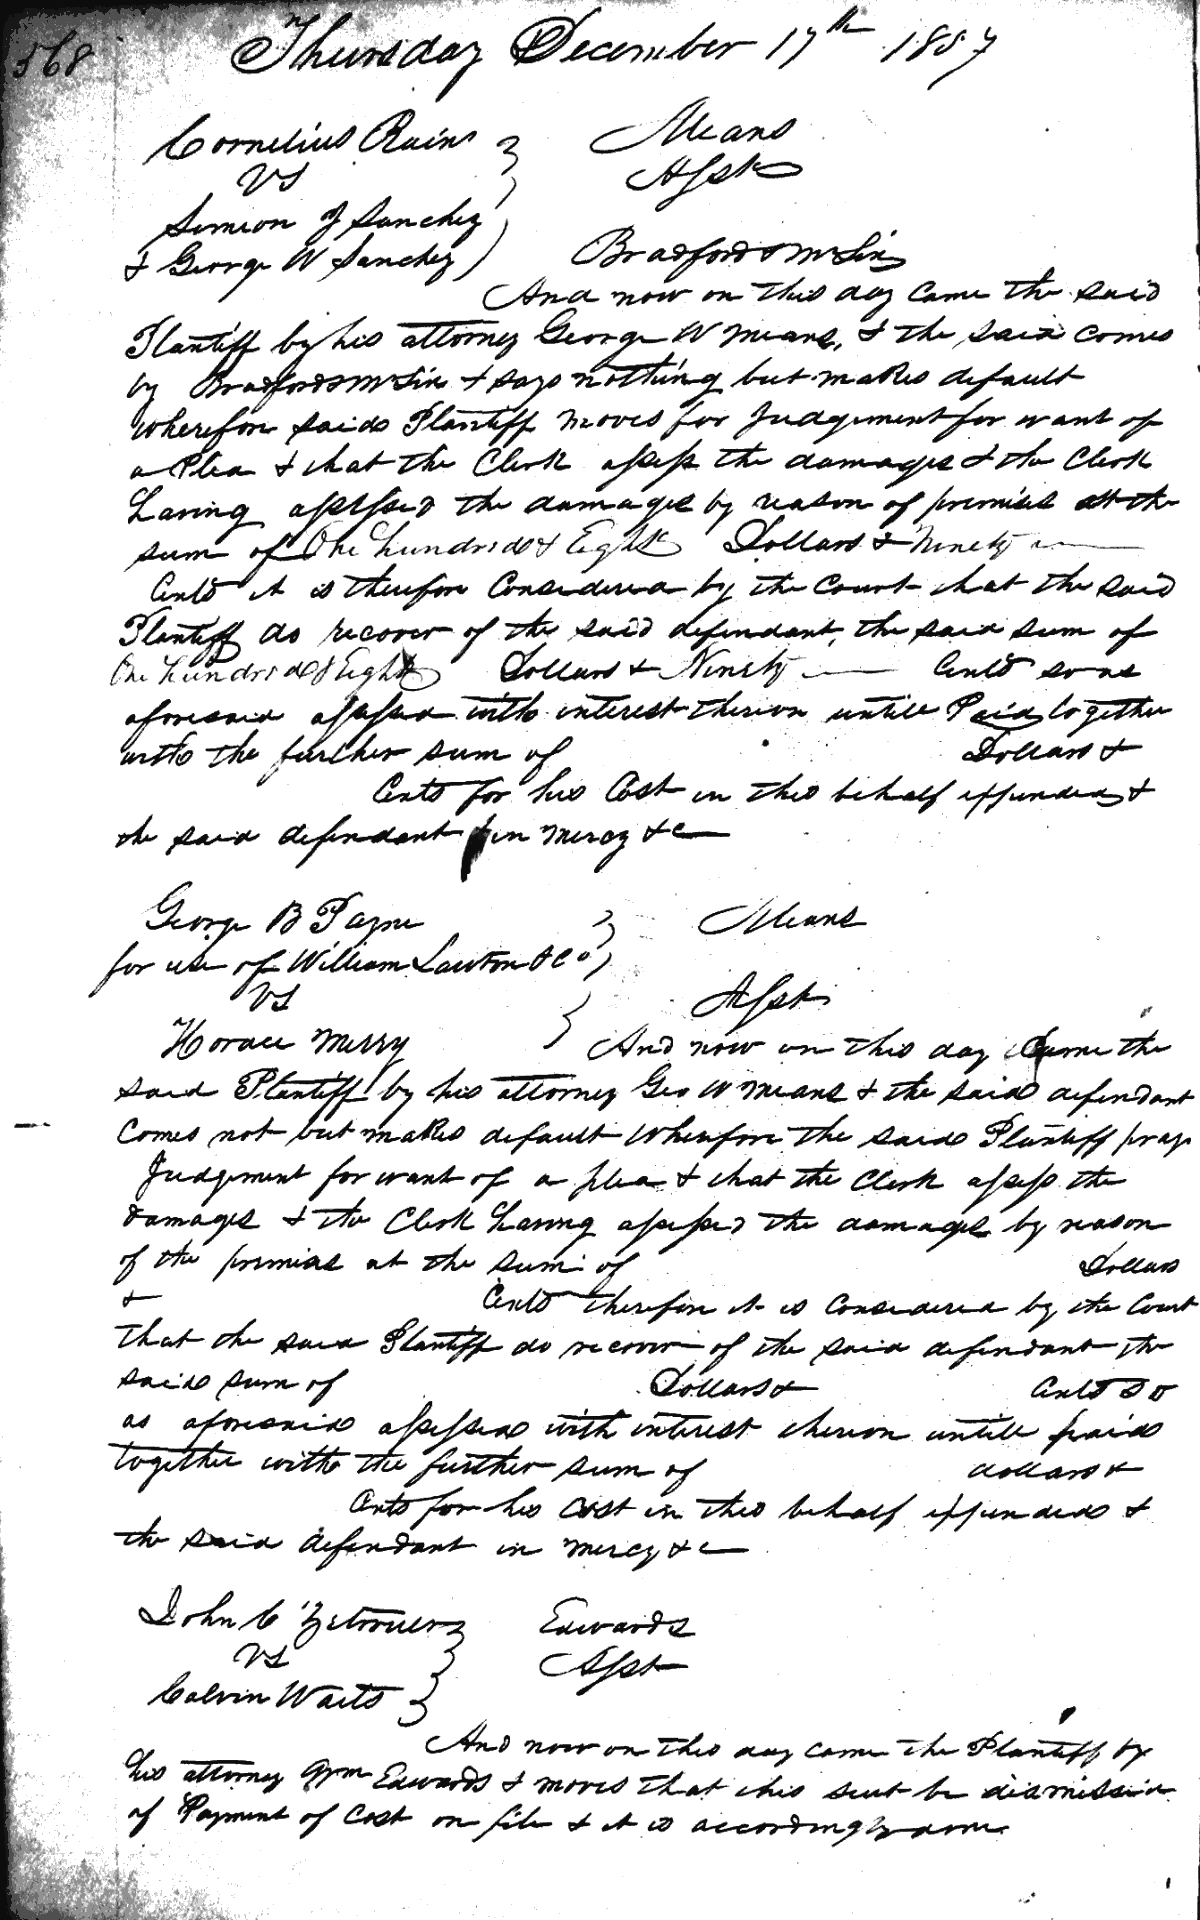 568 Thursday December 17th 1857
Cornelius Rain } Means
vs } Asst
Simeon J Sanchez
& George W Sanchez ) Bradford & McLin
And now on this day came the said
Plantiff by his attorney George W Means, & the said comes
by Bradford & McLin & says nothing but makes default
wherefore said Plantiff moves for Judgement for want of
a Plea & that the Clerk assess the damages & the Clerk
having assessed the damages by reason of premises at the
sum of One hundred & Eight Dollars & Ninety
Cents it is therefore Considered by the Court that the said
Plantiff do recover of the said defendant, the said sum of
One hundred & Eight Dollars & Ninety Cents so as
aforesaid assessed with interest thereon untill Paid together
with the further sum of Dollars &
Cents for his Cost in this behalf expended &
the said defendant in mercy &c
George B Payne } Means
for use of William Lawton & Co )
vs } Asst
Horace Merry And now on this day Came the
said Plantiff by his attorney Geo W Means & the said defendant
Comes not but makes default Wherefore the said Plantiff prays
Judgement for want of a plea & that the Clerk assess the
damages & the Clerk having assessed the damages by reason
of the premises at the sum of Dollars
& Cents therefore it is Considered by the Court
that the said Plantiff do recover of the said defendant the
said sum of Dollars & Cents so
as aforesaid assessed with interest thereon untill paid
together with the further sum of dollars &
Cents for his Cost in this behalf expended &
the said defendant in mercy &c
John C Zetrouer } Edwards
vs } Asst
Calvin Waits }
And now on this day came the Plantiff by
his attorney Wm Edwards & moves that this suit be dismissed
of Payment of Cost on file & it is accordingly done